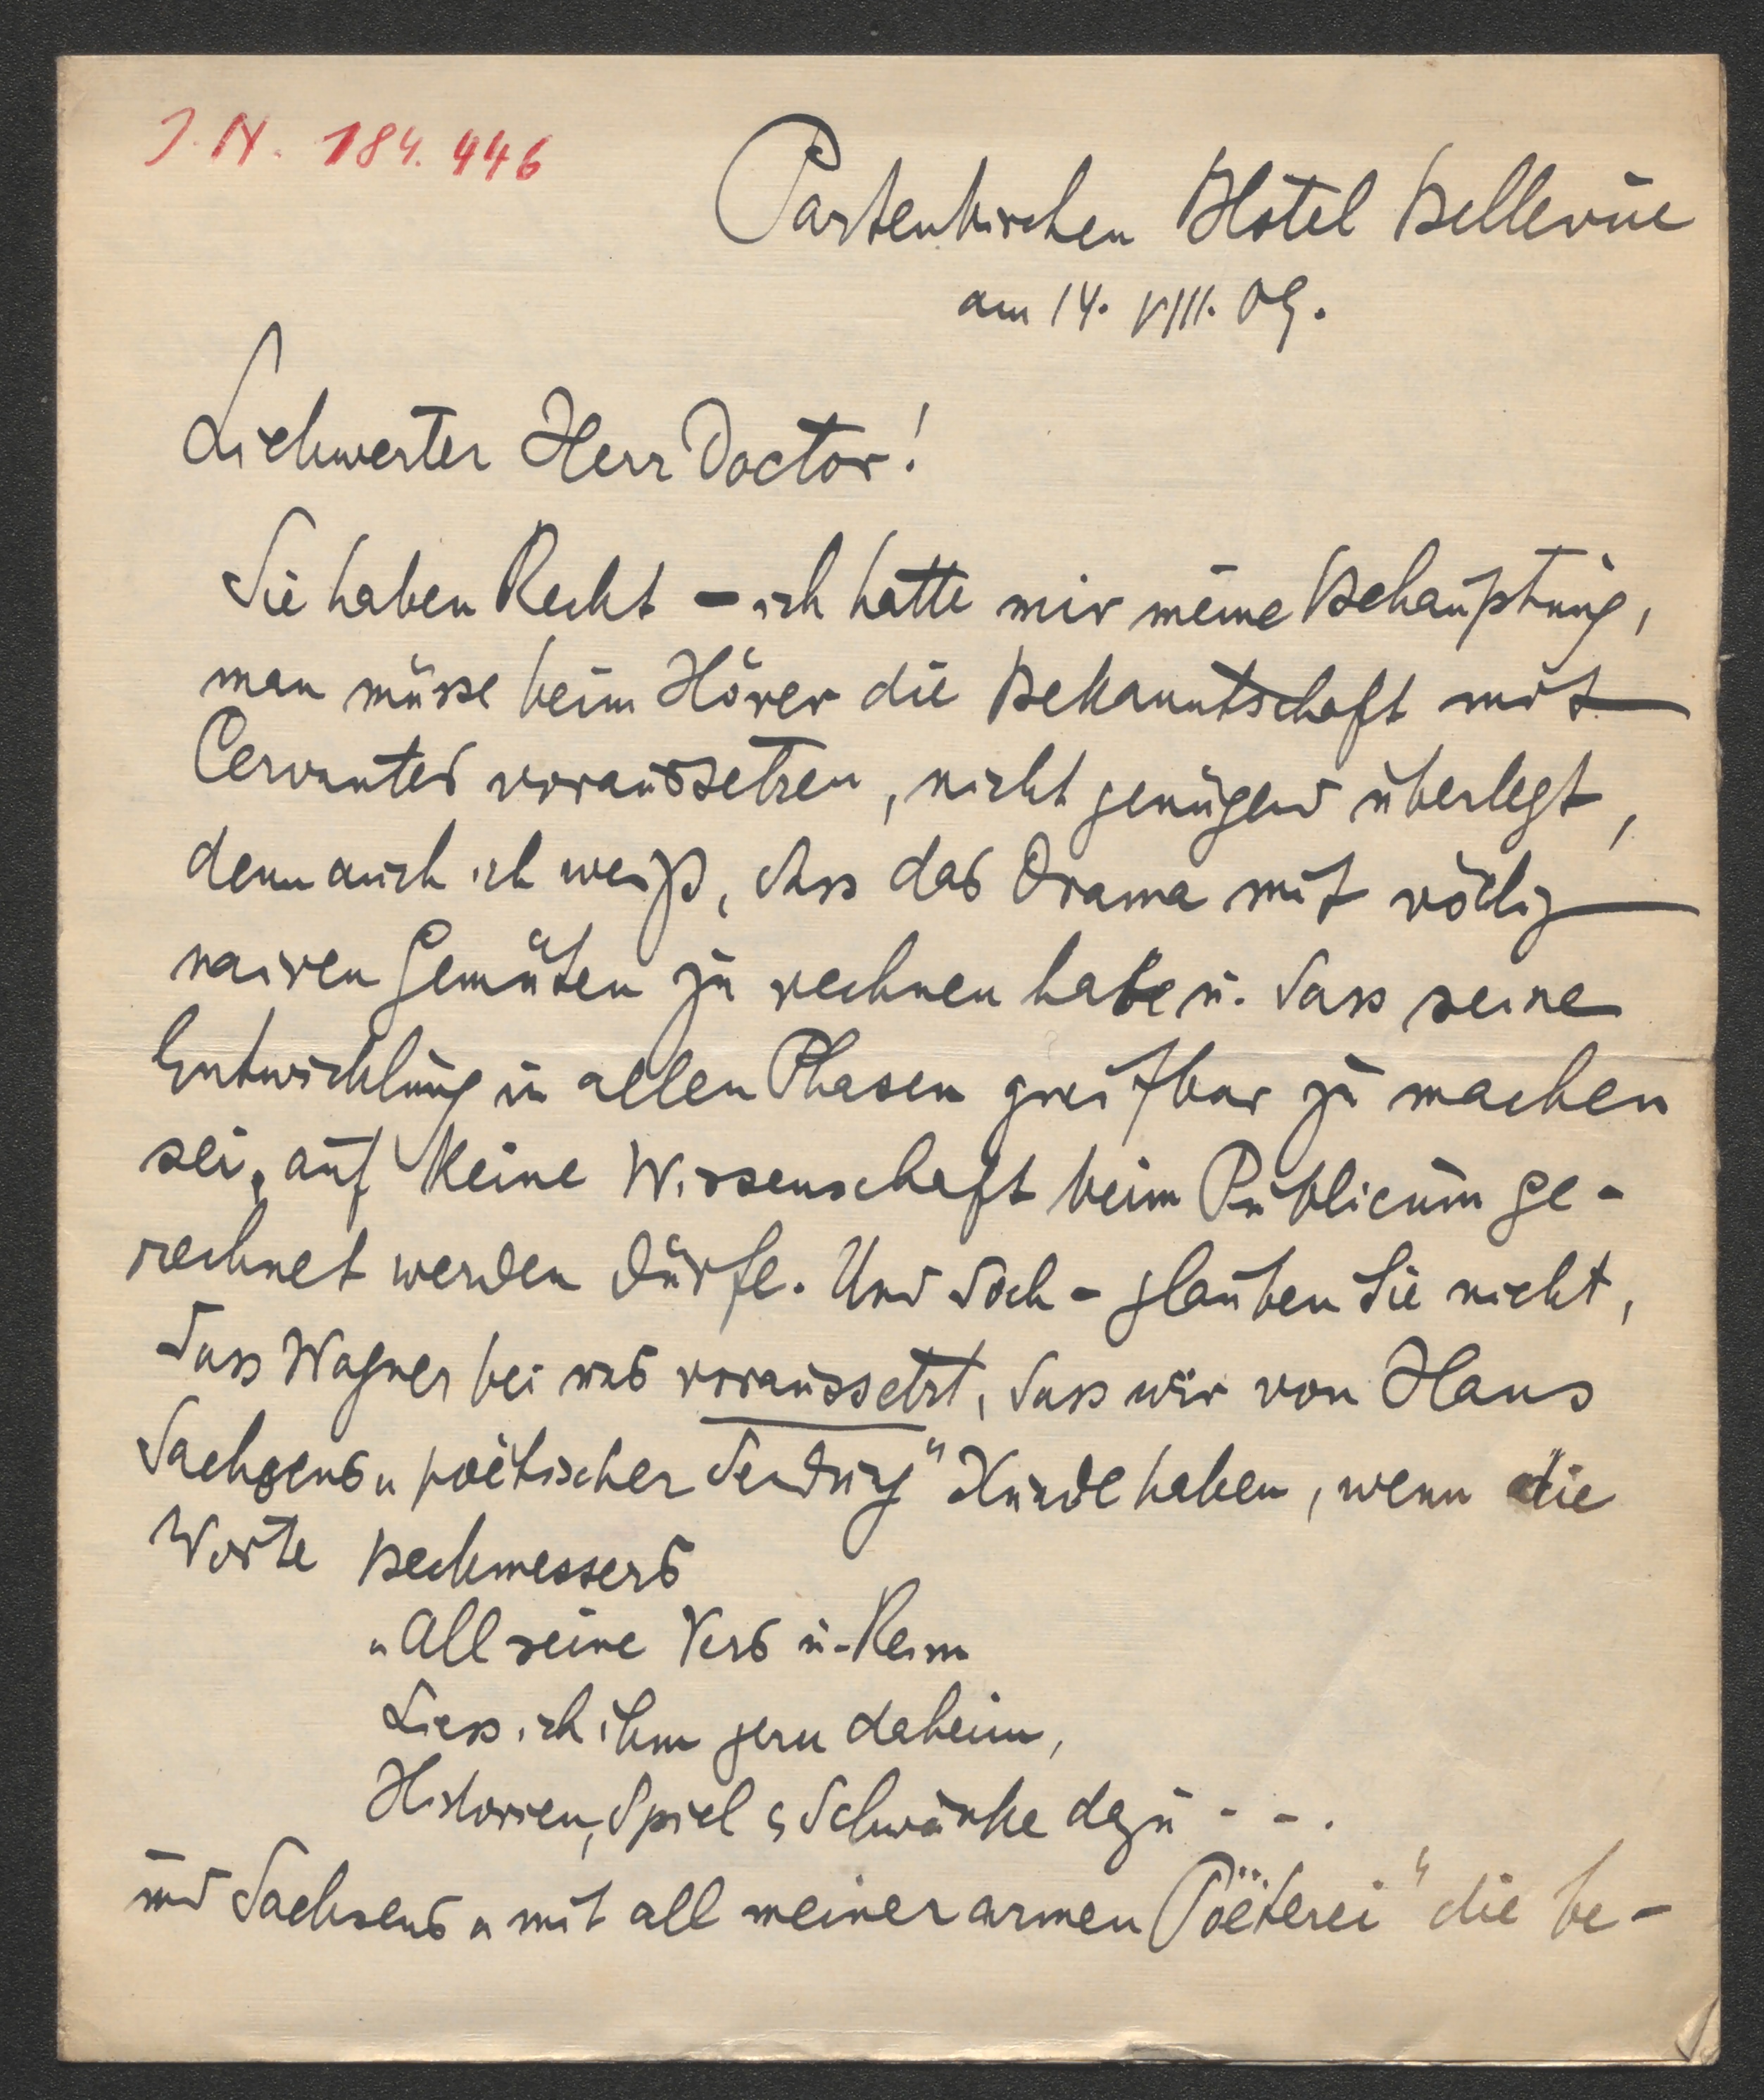 J. N. 184.446
Partenkirchen Hôtel Bellevue
am 14. VIII. 09.
Liebwerter Herr Doctor!
Sie haben Recht – ich hatte mir meine Behauptung,
man müsse beim Hörer die Bekanntschaft mit
Cervantes voraussetzen, nicht genügend überlegt,
denn auch ich weiß, dass das Drama mit völlig
naiven Gemüten zu rechnen habe u. dass seine
Entwicklung in allen Phasen greifbar zu machen
sei, auf keine Wissenschaft beim Publicum ge-
rechnet werden dürfe. Und doch – glauben Sie nicht,
dass Wagner bei uns voraussetzt, dass wir von Hans
Sachsens „poëtischer Sendung" Kunde haben, wenn die
Worte Beckmessers
„All seine Vers u. Reim
Liess ich ihm gern daheim,
Historien, Spiel & Schwänke dazu - - .
und Sachsens „mit all meiner armen Poëterei" die be-